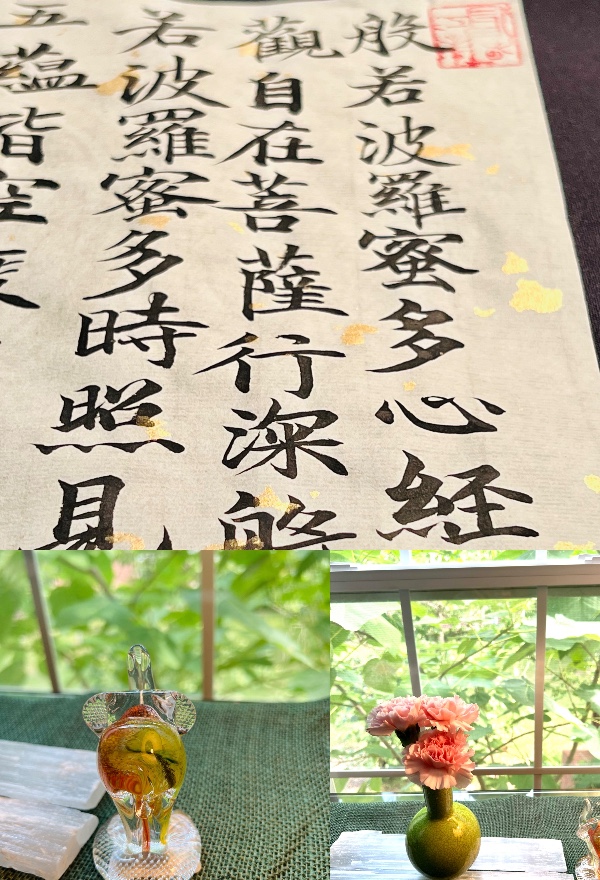 般若波羅蜜多心経
觀自在菩薩行深般
若波羅蜜多時照見
五蘊皆空度